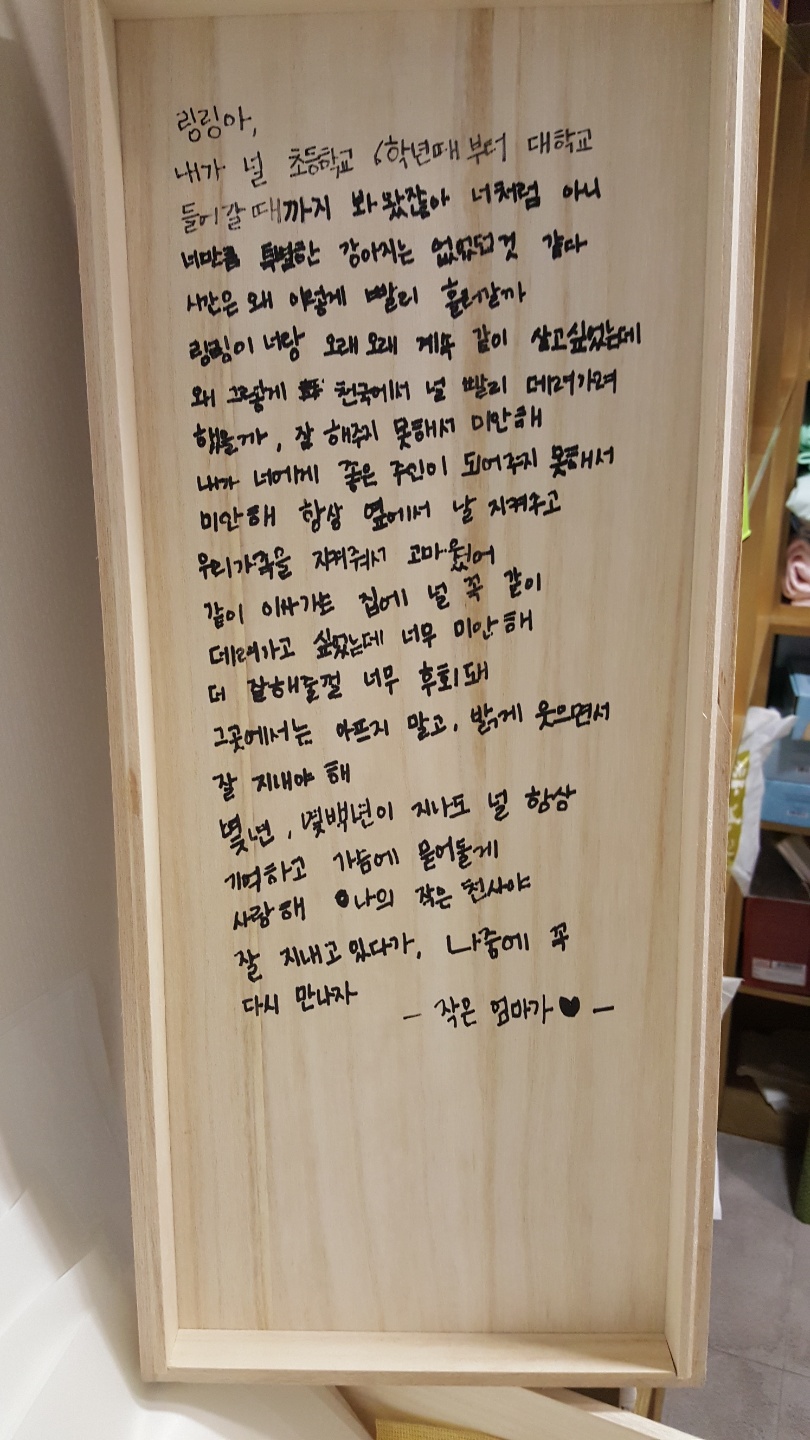 링링아,
내가 널 초등학교 6학년때부터 대학교
들어갈때까지 봐왔잖아 너처럼 아니
너만큼 특별한 강아지는 없었던것 같다
시간은 왜 이렇게 빨리 흘러갈까
링링이 너랑 오래오래 계속 같이 살고싶었는데
왜 그렇게 천국에서 널 빨리 데려가려
했을까, 잘 해주지 못해서 미안해
내가 너에게 좋은 주인이 되어주지 못해서
미안해 항상 옆에서 날 지켜주고
우리가족을 지켜줘서 고마웠어
같이 이사가는 집에 널 꼭 같이
데려가고 싶었는데 너무 미안해
더 잘해줄걸 너무 후회돼
그곳에서는 아프지 말고, 밝게 웃으면서
잘 지내야 해
몇년, 몇백년이 지나도 널 항상
기억하고 가슴에 묻어둘게
사랑해 나의 작은 천사야
잘 지내고있다가, 나중에 꼭
다시 만나자
- 작은 엄마가♥ -